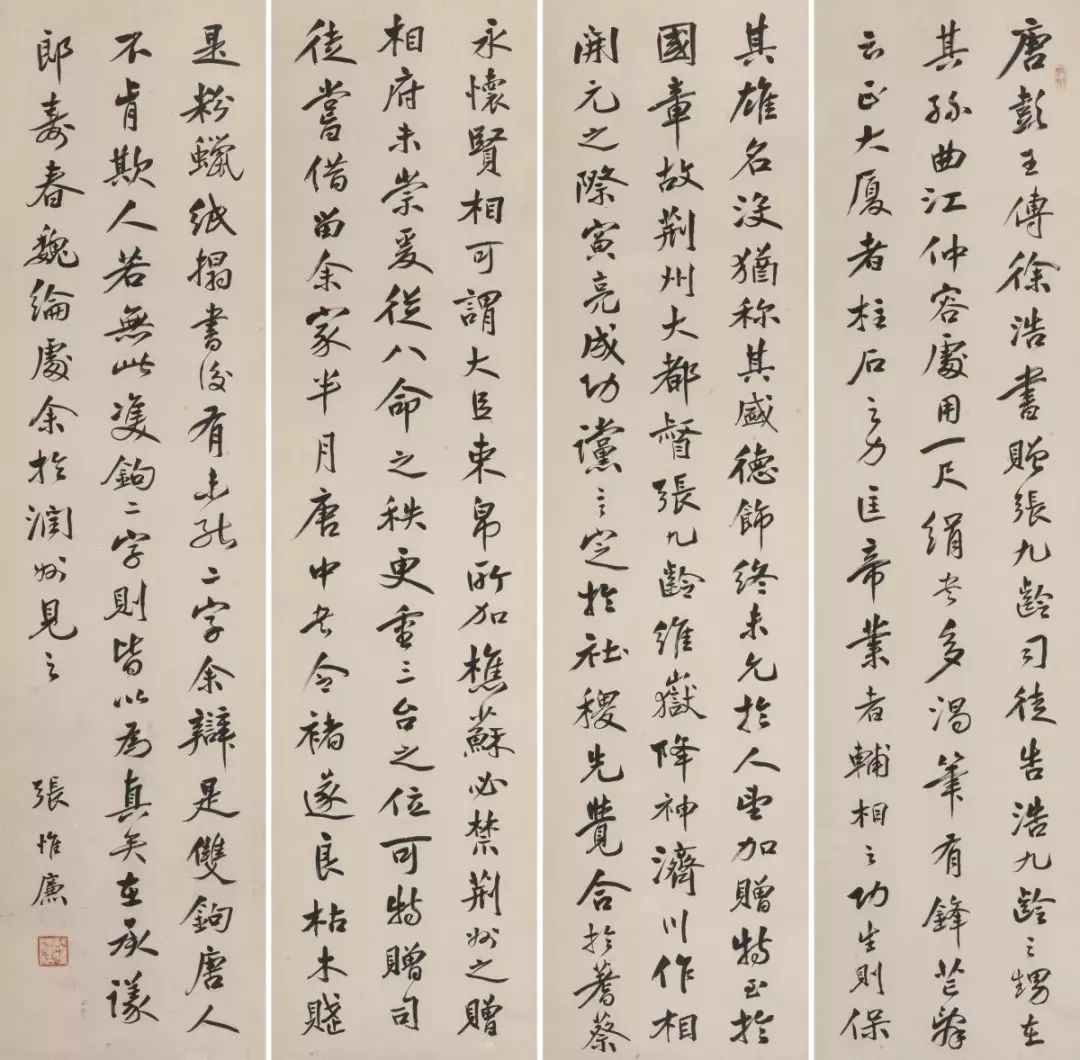 唐彭王傅徐浩書贈張九齡司徒告浩九齡之甥在
其孫曲江仲容處用一尺絹書多渴筆有鋒芒辭
云正大厦者柱石之力匡帝業者輔相之功生則保
其雄名没猶称其盛德飾終未允於人望加贈特玉於
國章故荆州大都督張九齡維嶽降神濟川作相
開元之際寅亮成功讜言定於社稷先覺合於蓍蔡
永懷賢相可謂大臣束帛所加樵蘇必禁荆州之贈
相府未崇爰從八命之秩更重三台之位可特贈司
徒嘗借留余家半月唐中書令褚遂良枯木賤
是粉蠟紙搨書後有未能二字余辯是雙鉤唐人
不肯欺人若無此雙鉤二字則皆以為真矣在承議
郎壽春魏綸處余於潤州見之
張惟廉